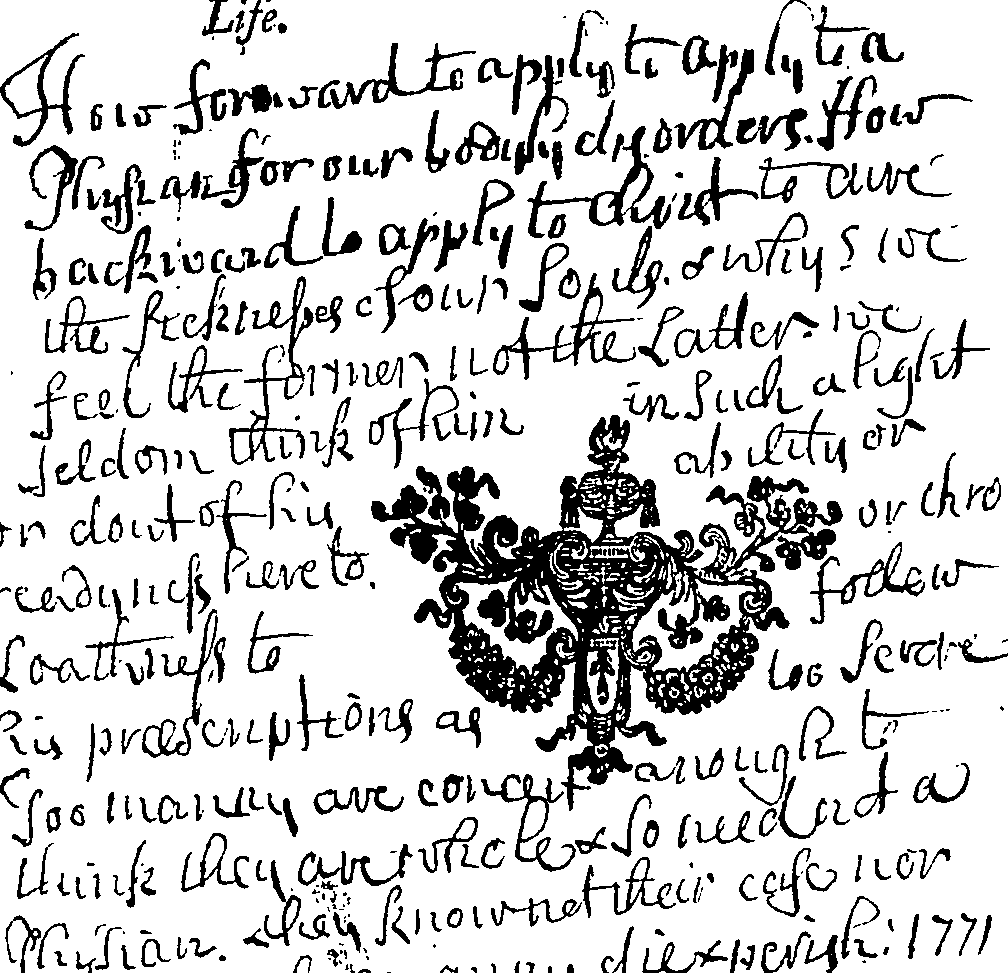 Life.
How forward to apply to apply to a
Physian for our bodyly disorders. How
backward to apply to christ to cure
the sicknesses of our Souls. & why? we
feel the former not the Latter. we
seldom think of him in Such a light
or dout of his ability or
readyness hereto. or thro
Loathness to follow
his præscriptions as too Severe
Too manny are conceit anough to
think they are whole & so need not a
Physian. they know not their case nor
die & perish: 1771